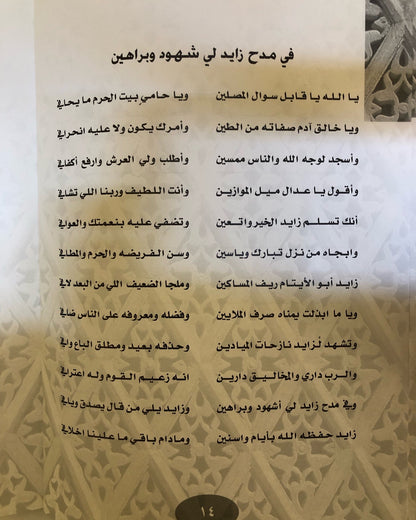 في مدح زايد لي شهود وبراهين
يا الله يا قابل سوال المصلين ويا حامي بيت الحرم ما يحافي
ويا خالق آدم صفاته من الطين وأمرك يكون ولا عليه انحرافي
وأسجد لوجه الله والناس ممسين وأطلب ولي العرش وارفع أكفافي
وأقول يا عدال ميل الموازين وأنت اللطيف وربنا اللي تشافي
أنك تسلم زايد الخير واتعين وتضفي عليه بنعمتك والعوافي
وابجاه من نزل تبارك وياسين وسن الفريضه والحرم والمطافي
زايد أبو الأيتام ريف المساكين وملجا الضعيف اللي من البعد لافي
ويا ما ابذلت يمناه صرف الملايين وفضله ومعروفه على الناس ضافي
وتشهد لزايد نازحات الميادين وحذفه بعيد ومطلق الباع وافي
والرب داري والمخاليق دارين انه زعيم القوم وله اعترافي
وفي مدح زايد لي أشهود وبراهين وزايد يلي من قال يصدق ويافي
زايد حفظه الله بأيام واسنين ومادام باقي ما علينا اخلافي
١٤